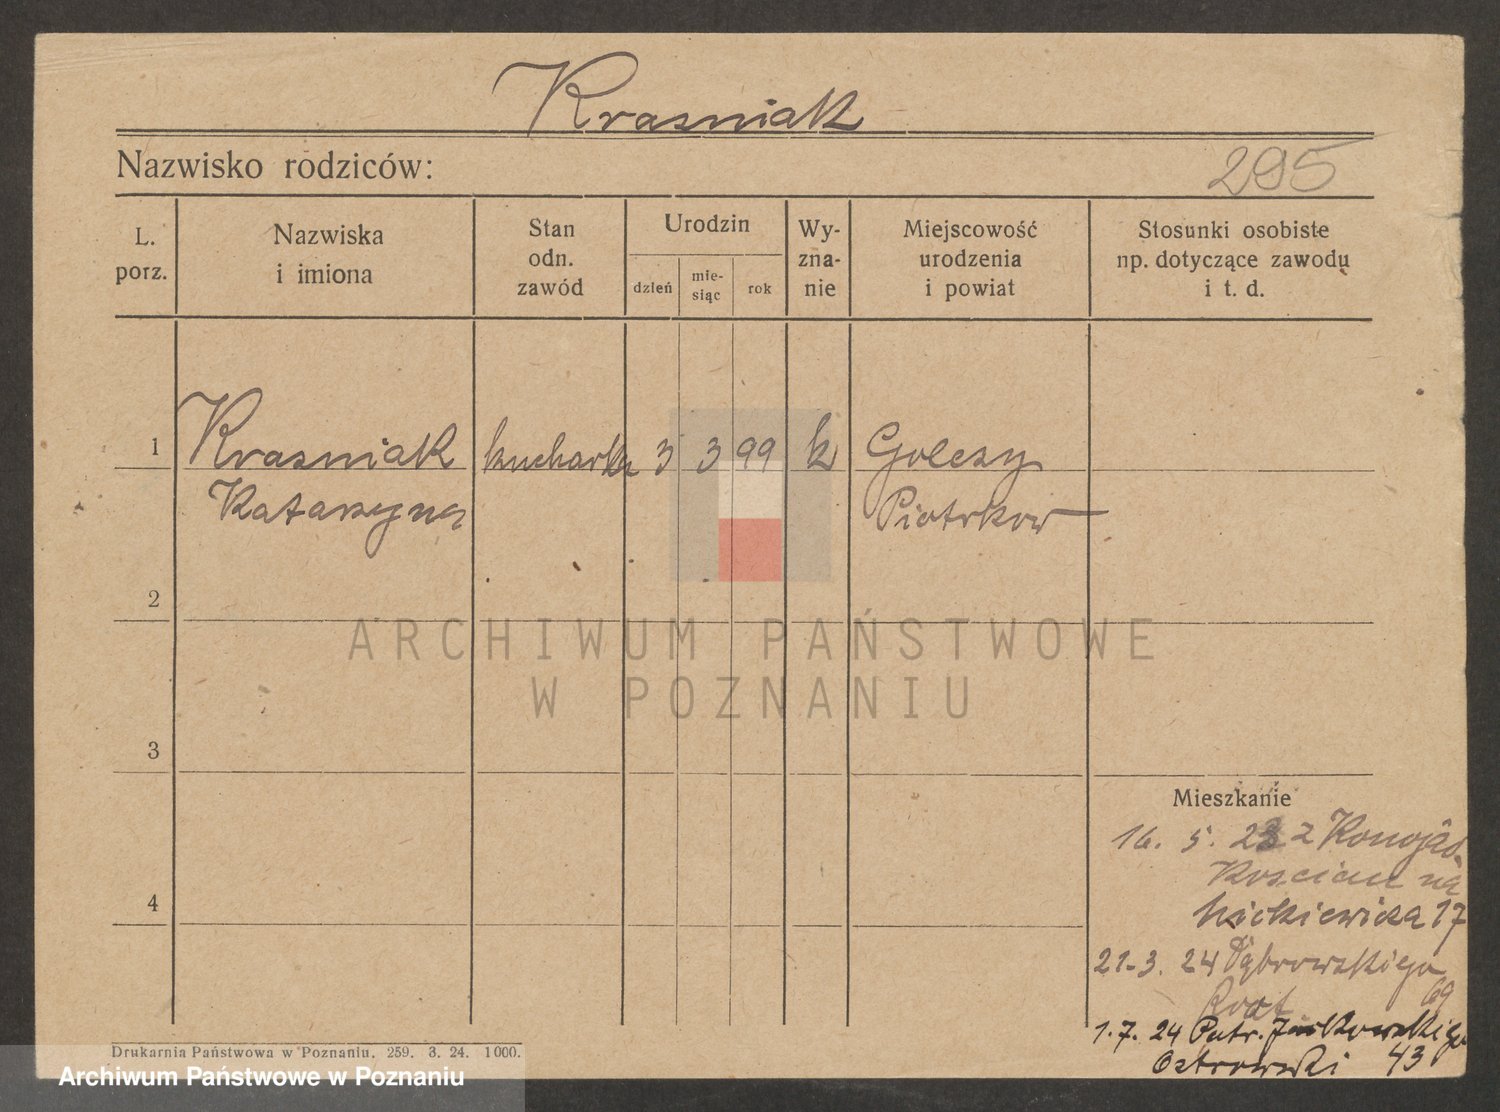 Krasniak
Nazwisko rodziców:
295
L. porz.
Nazwiska i imiona
Stan odn. zawód
Urodzin
dzień
mie-siąc
rok
Wy-zna-nie
Miejscowość urodzenia i powiat
Stosunki osobiste np. dotyczące zawodu i t. d.
1 Krasniak kucharka 3 3 99 k Goleszy
Katarzyna Piotrkow
2
ARCHIWUM PAŃSTWOWE
W POZNANIU
3
Mieszkanie
16. 5. 23 z Konojad
Koscian na
Mickiewicza 17
4
21-3. 24 Dąbrowskiego
69
1.7. 24 Patr. Jackowskiego
Ostrowski 43
Drukarnia Państwowa w Poznaniu. 259. 3. 24. 1000.
Archiwum Państwowe w Poznaniu